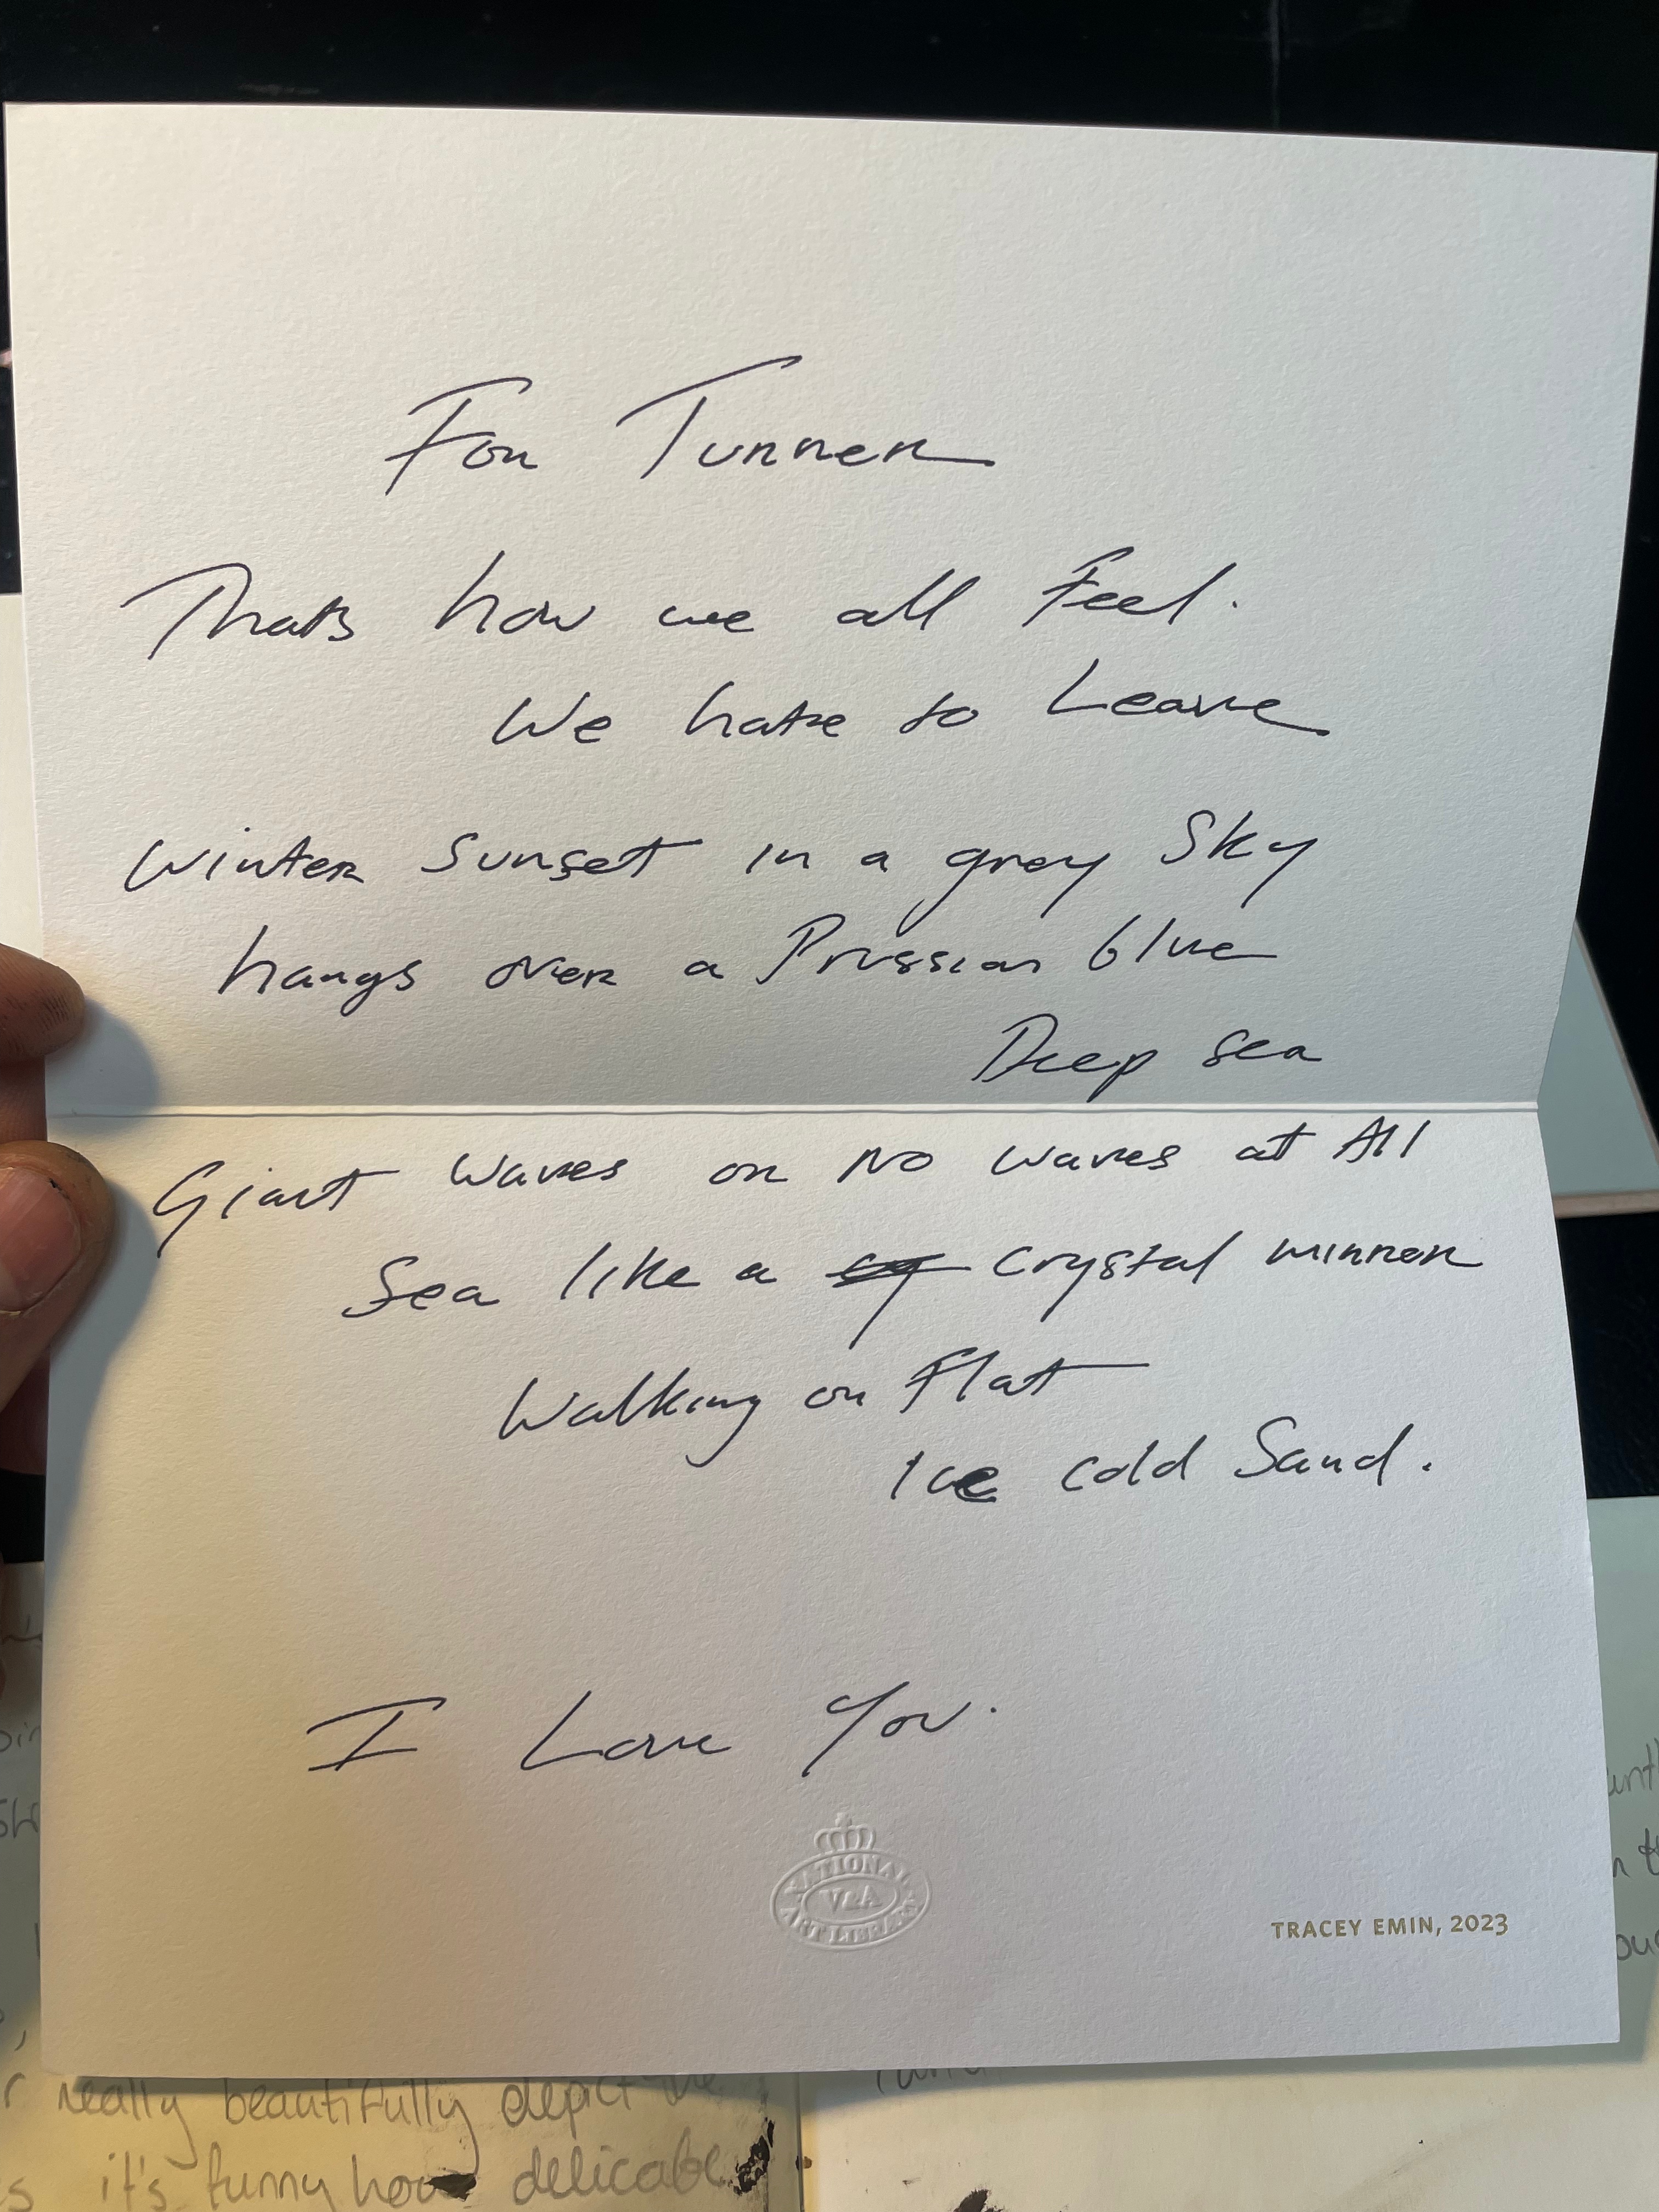 For Turner
Thats how we all Feel.
We hate to Leave
Winter Sunset in a grey Sky
hangs over a Prussian blue
Deep sea
Giant Waves or No waves at All
Sea like a crystal mirror
Walking on Flat
Ice cold Sand.
I Love You.
NATIONAL
V&A
ART LIBRARY
TRACEY EMIN, 2023
really beautifully depict the
it's funny how delicate